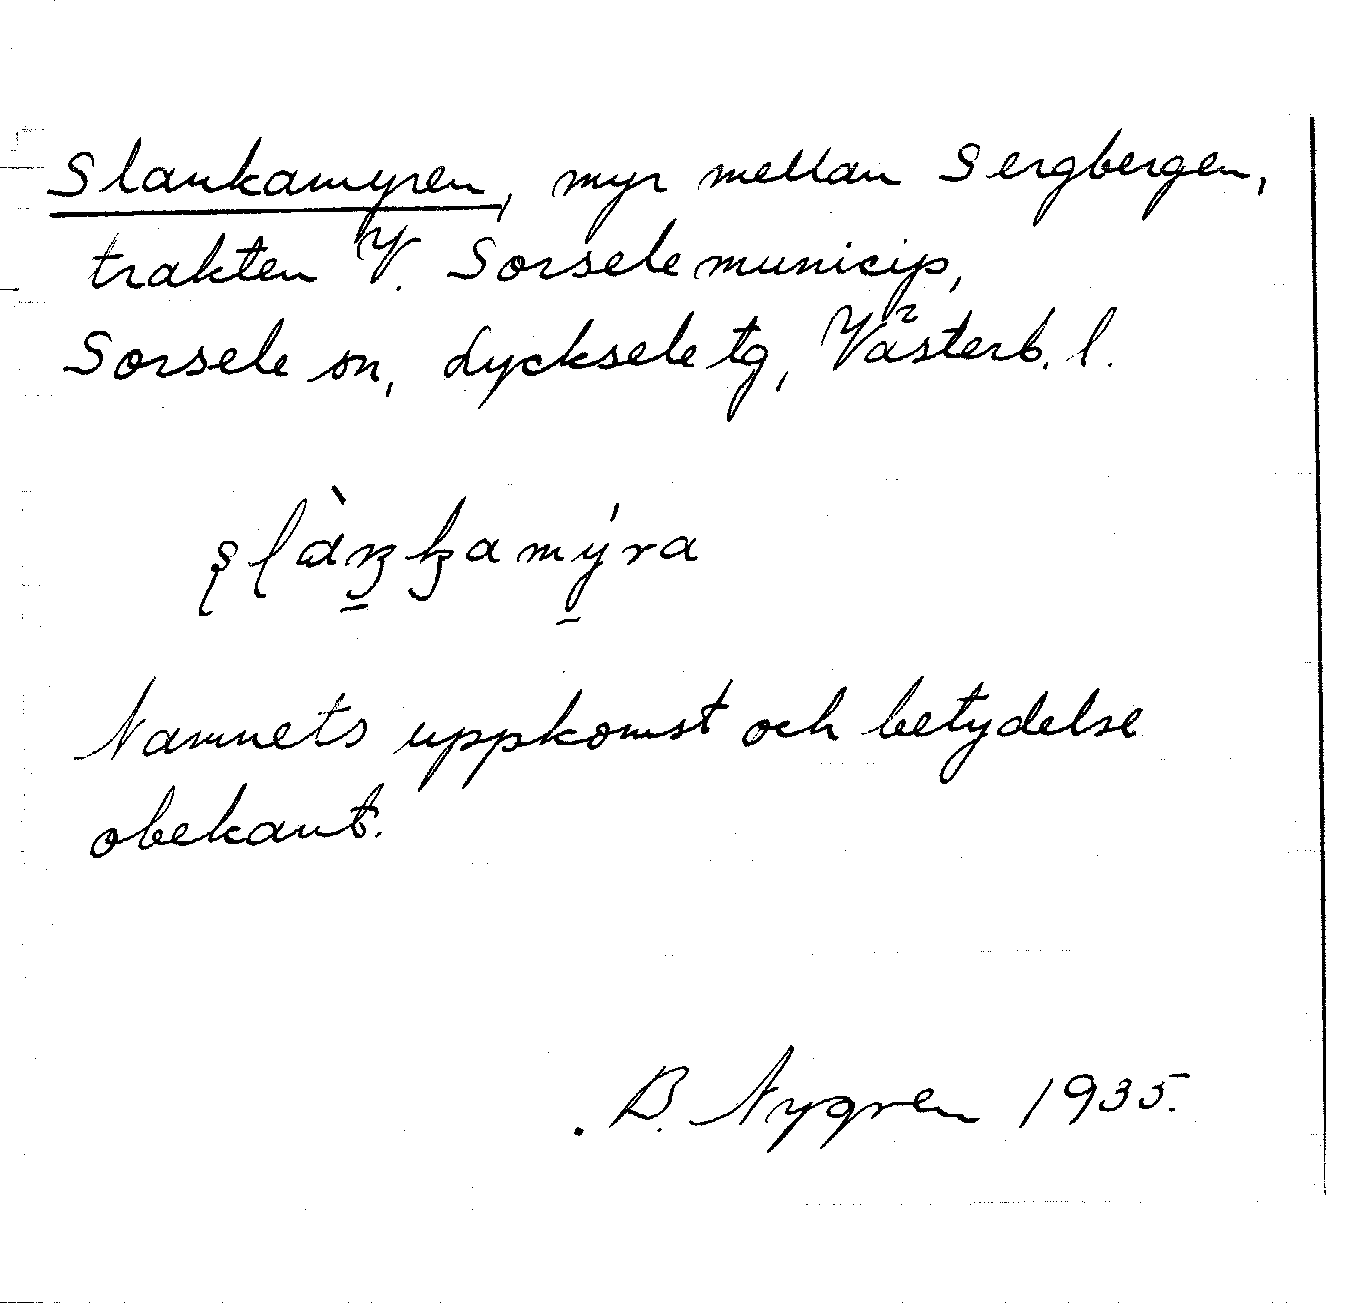 Slankamyren, myr mellan Sergbergen,
trakten V. Sorsele municip,
Sorsele sn, Lycksele tg, Västerb. l.
Namnets uppkomst och betydelse
obekant.
B. Nygren 1935.